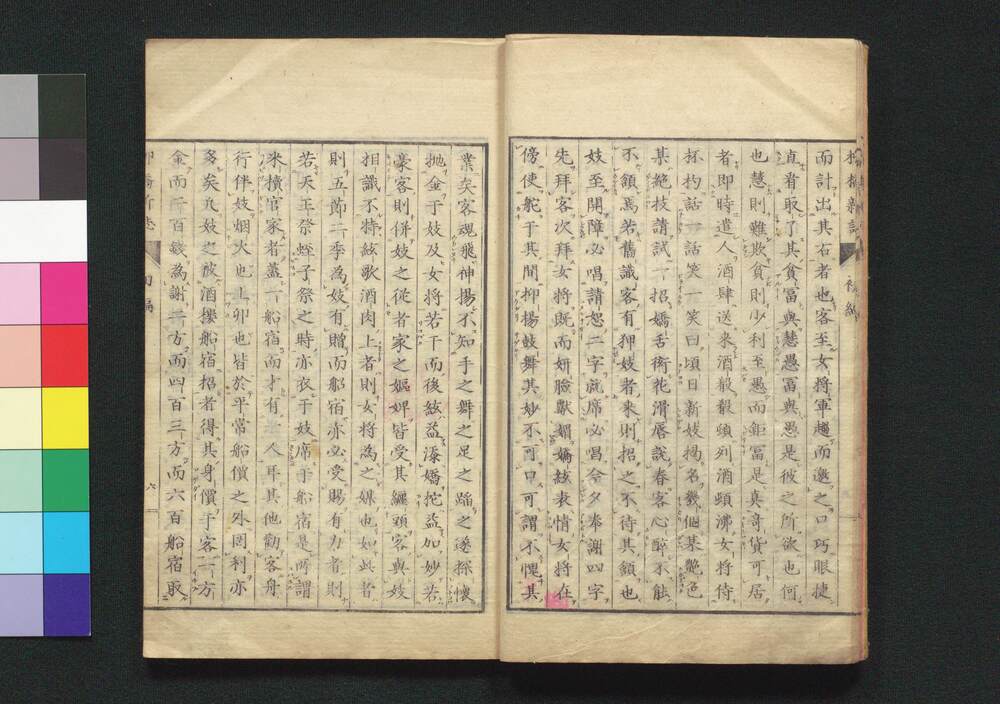 柳橋新誌 初編
而計出其右者也客至女將軍趨而邀之口巧眼捷
直眘取了其貪冨與慧愚冨與愚是彼之所欲也何
也慧則難欺貪則少利至愚而鉅冨是真奇貨可居
者即時遣人酒肆送來酒殽殽頻列酒頻沸女将侍
杯杓話一話笑一笑曰頃日新妓揭名幾個某艶色
某絶技請試一招嬌舌衒花滑唇説春客心醉不能
不頷焉若舊識客有狎妓者来則招之不待其頷也
妓至開障必唱請恕二字就席必唱今夕奉謝四字
先拜客次拜女将既而妍臉獻媚嬌絃表情女将在
傍使舵于其間抑揚鼓舞其妙不可口可謂不愧其
業矣客魂飛神揚不知手之舞之足之蹈之遂探懐
抛金于妓及女将若干而後絃益濠嬌抡益加妙若
豪客則併妓之従者家之嫗婢皆受其纏頭客與妓
相識不待絃歌酒肉上者則女将為之媒也如此者
則五節二季為妓有贈而船宿亦必受賜有力者則
若天王祭蛭子祭之時亦衣于妓席于船宿是所謂
来擴官家者蓋一船宿而才有一人耳其他勸客舟
行伴妓烟火也上卯也皆於平常船價之外罔利亦
多矣凡妓之酸酒擽船宿招者得其身價于客一方
金而二百錢為謝二方而四百三方而六百船宿取
柳橋新志 初編 六